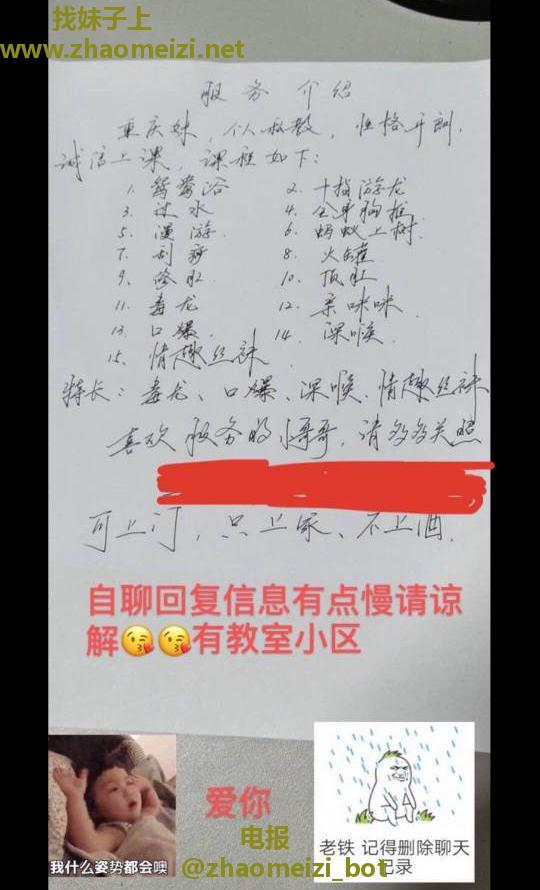 找妹子上
www.zhaomeizi.net
服务介绍
重庆妹，个人兼教，性格开朗，
诚信上课，课程如下：
1. 鸳鸯浴 2. 十指游龙
3. 过水 4. 全身胸推
5. 漫游 6. 蚂蚁上树
7. 刮痧 8. 火罐
9. 修肛 10. 顶肛
11. 毒龙 12. 亲咪咪
13. 口爆 14. 深喉
15. 情趣丝袜
特长：毒龙、口爆、深喉、情趣丝袜
喜欢服务的小哥哥，请多多关照
可上门，只上家、不上酒．
自聊回复信息有点慢请谅
解😘😘有教室小区
爱你
我什么姿势都会噢
老铁 记得删除聊天
记录
电报
@zhaomeizi_bot